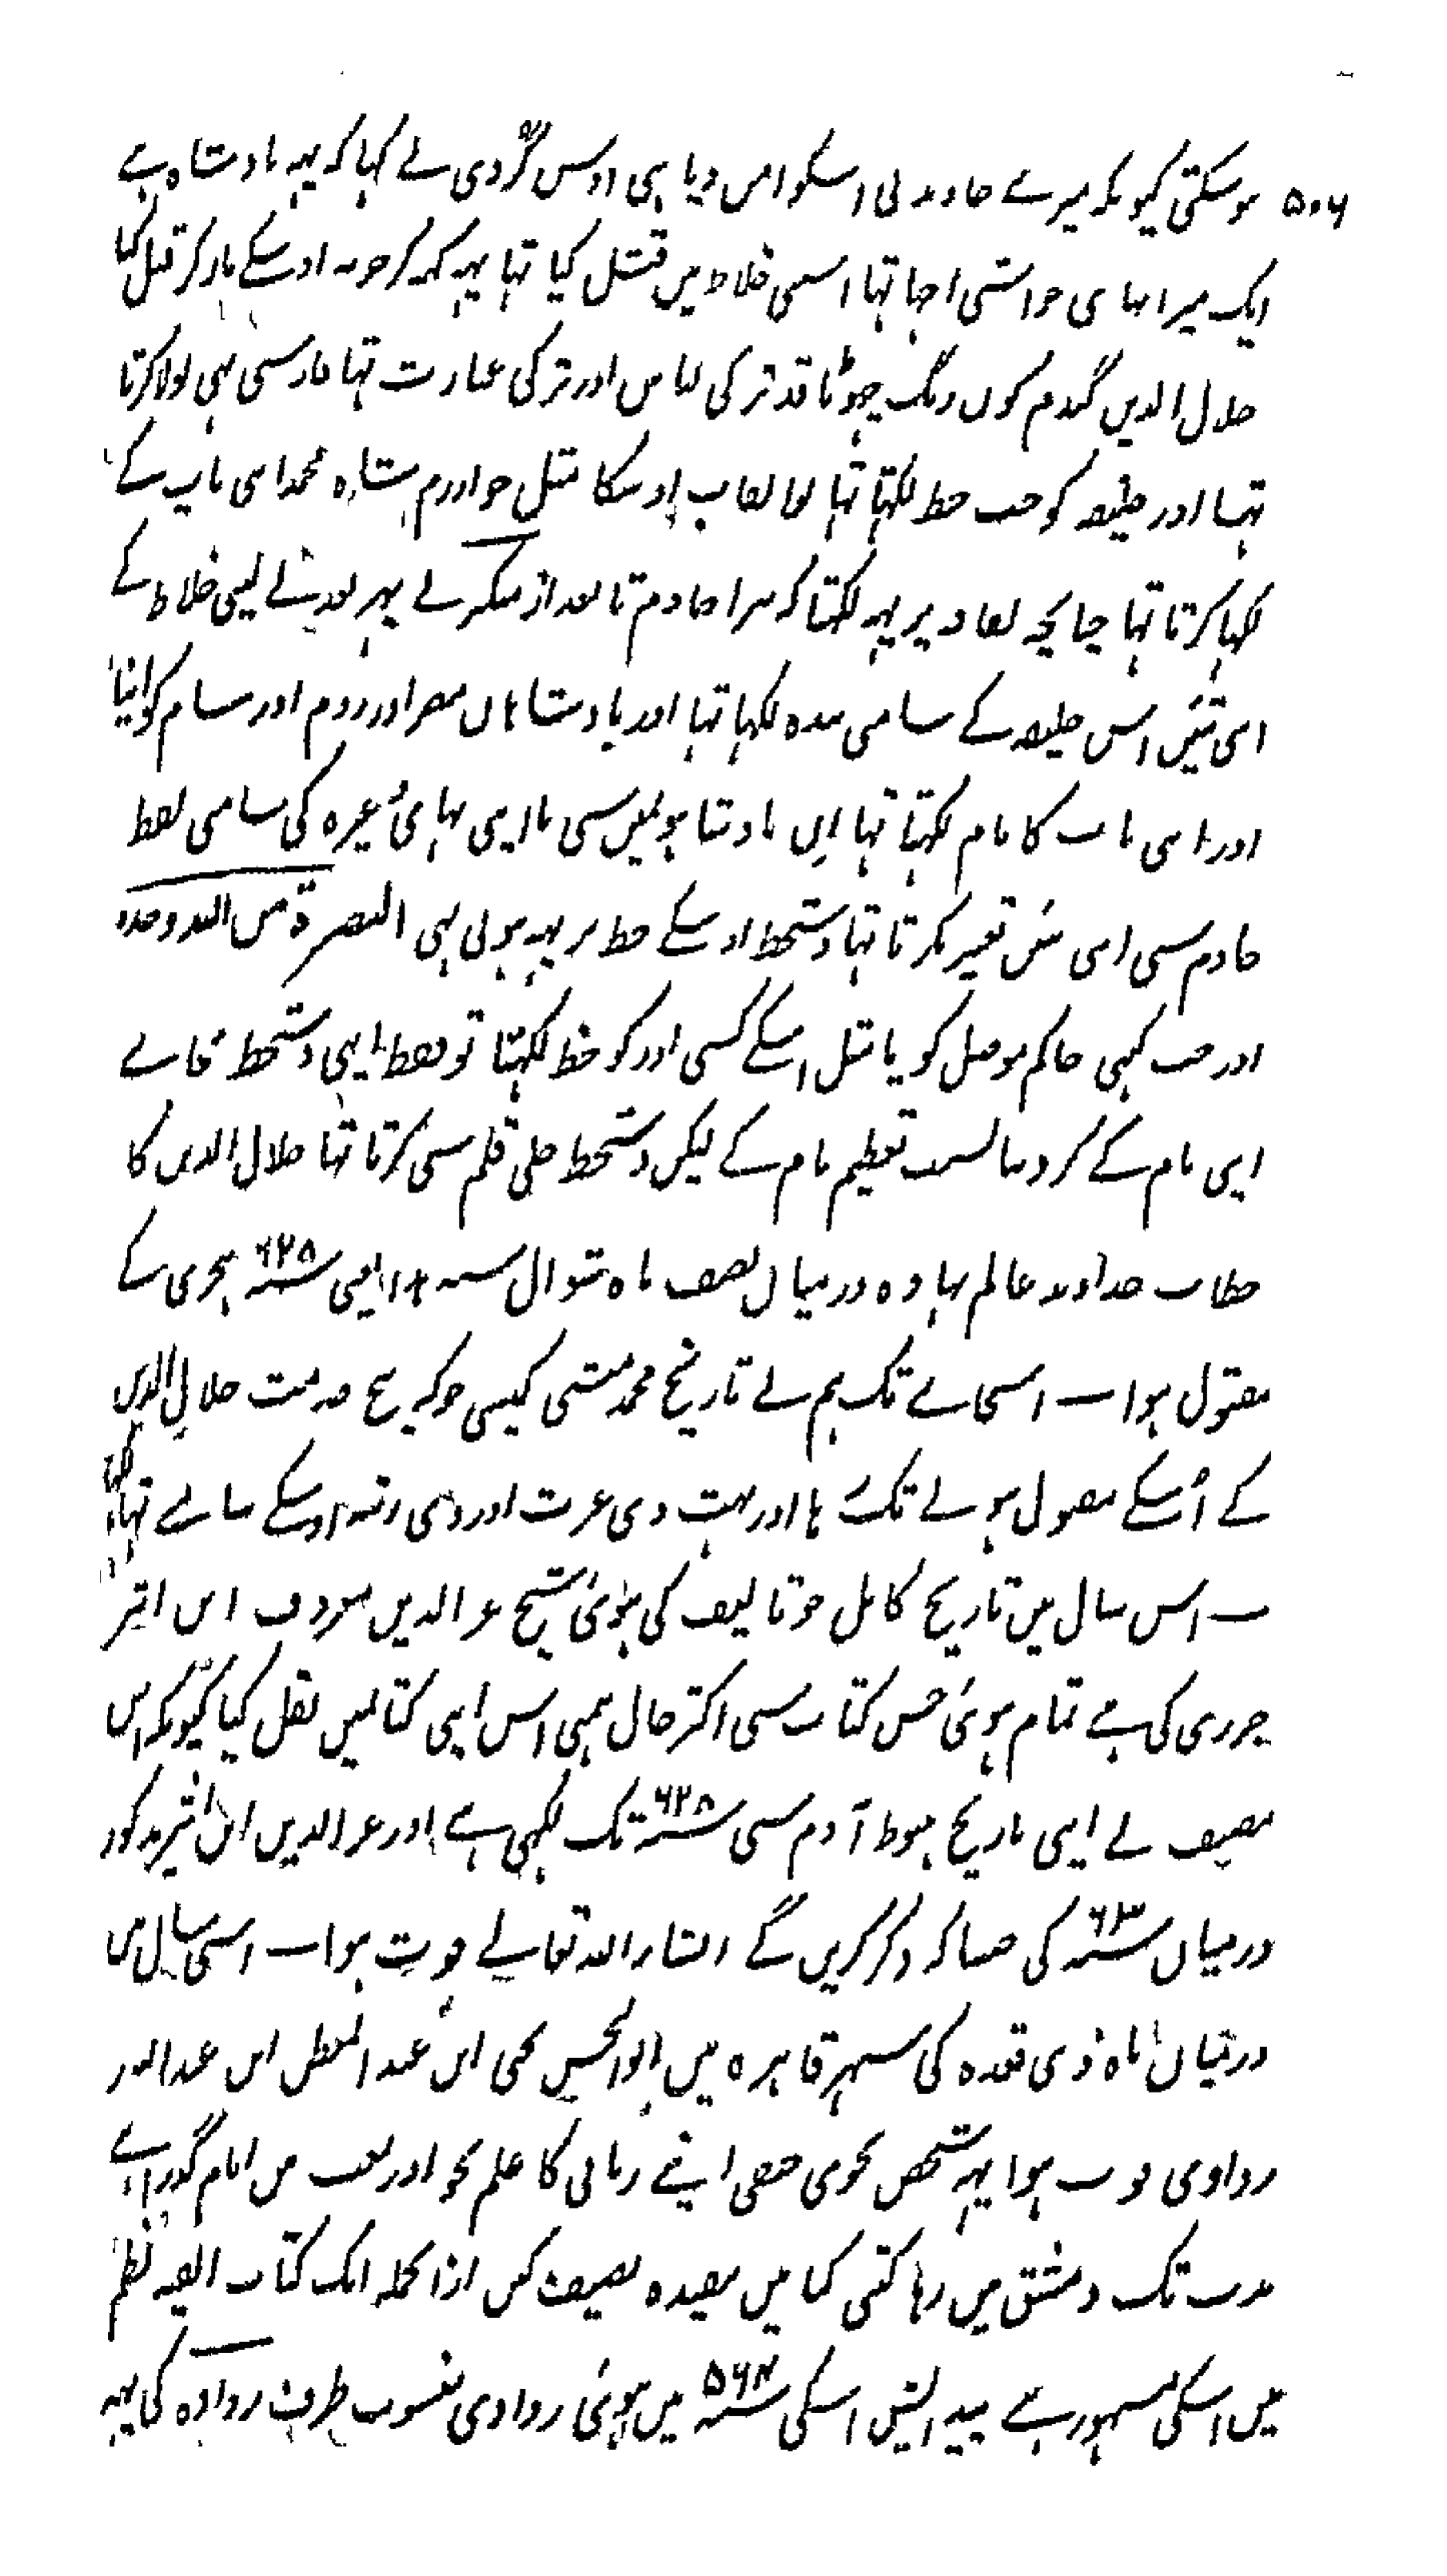 ۵۰۶
ہوسکتی کیونکہ میرے خاوند نی اسکو امن دیا ہی اوس کُردی نے کہا کہ یہہ بادشاہ ہے
ایک میرا بہای جو اسّی اچہا تہا اسنی خلاط میں قتل کیا تہا یہہ کہہ کر حربہ اوسکے مار کر قتل کیا
جلال الدین گندم گوں رنگ چھوٹا قد ترکی لباس اور ترکی عبارت تہا فارسی بہی بولا کرتا
تہا اور خلیفہ کو جب خط لکہتا تہا تو القاب اوسکا مثل خوارزم شاہ محمد اپنی باپ کے
لکہا کرتا تہا چنانچہ بغداد پر یہہ لکہتا کہ میرا خادم تابعدار منکبرنے پہر بعد لینی خلاط کے
اپنی تئیں اس خلیفہ کے سامنی بندہ لکہا تہا اور بادشاہاں مصر اور روم اور شام کو اپنا
اور اپنی باپ کا نام لکہتا تہا ان بادشاہونمیں سی یا اپنی بہائ غیرہ کی سامنی لفظ
خادم سی اپنی تئیں تعبیر نکرتا تہا دستخط اوسکے خط پر یہہ ہوتی ہی النصرۃ من اللہ وحدہ
اور جب کبہی حاکم موصل کو یا مثل اسکے کسی اور کو خط لکہتا تو فقط اپنی دستخط بجائے
اپنی نام کے کر دیتا بسبب تعظیم نام کے لیکن دستخط جلی قلم سی کرتا تہا جلال الدین کا
خطاب خداوند عالم تہا وہ درمیان نصف ماہ شوال سنہ ہذا یعنی ۶۲۸؁ ہجری کے
مقتول ہوا۔ اس جائے تک ہم نے تاریخ محمد منشی کیسی جو کہ بیچ خدمت جلال الدین
کے اُسکے مقتول ہونے تک رہا اور بہت ذی عزت اور ذی رتبہ اوسکے سامنے تہا
۔ اس سال میں تاریخ کامل جو تالیف کی ہوئی شیخ عز الدین معروف ابن اثیر
جزری کی ہے تمام ہوئی جس کتاب سی اکثر حال ہمنی اس اپنی کتابمیں نقل کیا کیونکہ اس
مصنف نے اپنی تاریخ ہبوط آدم سی ۶۲۸؁ تک لکہی ہے اور عز الدین ابن اثیر مذکور
درمیاں ۶۳۰؁ کی جیسا کہ ذکر کریں گے انشاء اللہ تعالے فوت ہوا۔ اسی سال میں
درمیان ماہ ذی قعدہ کی شہر قاہرہ میں ابو الحسین یحیی ابن عبد المعطی ابن عبد النور
زواوی فوت ہوا یہہ شخص نحوی حنفی اپنے زمانی کا علم نحو اور لغت میں امام گزرا ہے
مدت تک دمشق میں رہا کتنی کتابیں مفیدہ تصنیف کیں ازانجملہ ایک کتاب الفیہ نظم
میں اسکی مشہور ہے پیدایش اسکی ۵۶۴؁ میں ہوئی زواوی منسوب طرف زواوہ کی یہہ